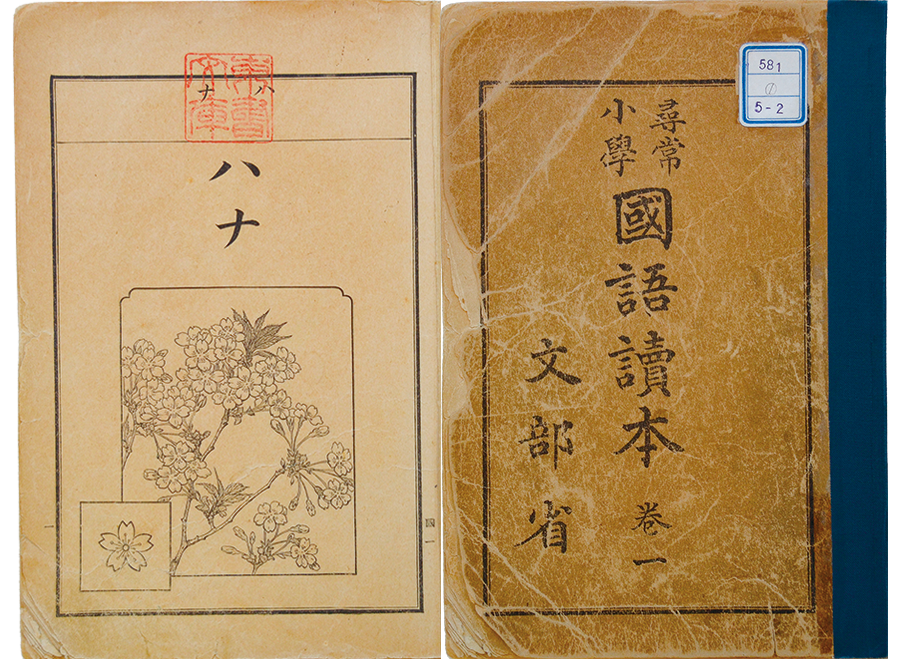 581
①
5-2
尋常
小學
國語讀本 卷一
文部省
ハナ
東書文庫
ハナ